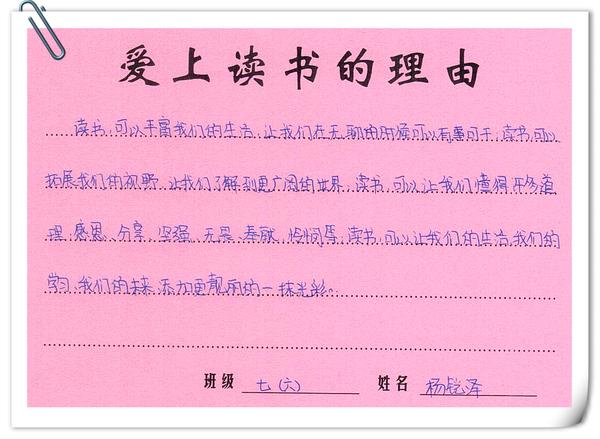 爱上读书的理由
读书,可以丰富我们的生活,让我们在无聊的时候可以有事可干,读书,可以
拓展我们的视野,让我们了解到更广阔的世界,读书,可以让我们懂得许多道
理,感恩、分享、坚强、无畏、奉献、怜悯等,读书,可以让我们的生活,我们的
学习,我们的未来,添加更靓丽的一抹光彩。
班级 七(六) 姓名 杨锐泽